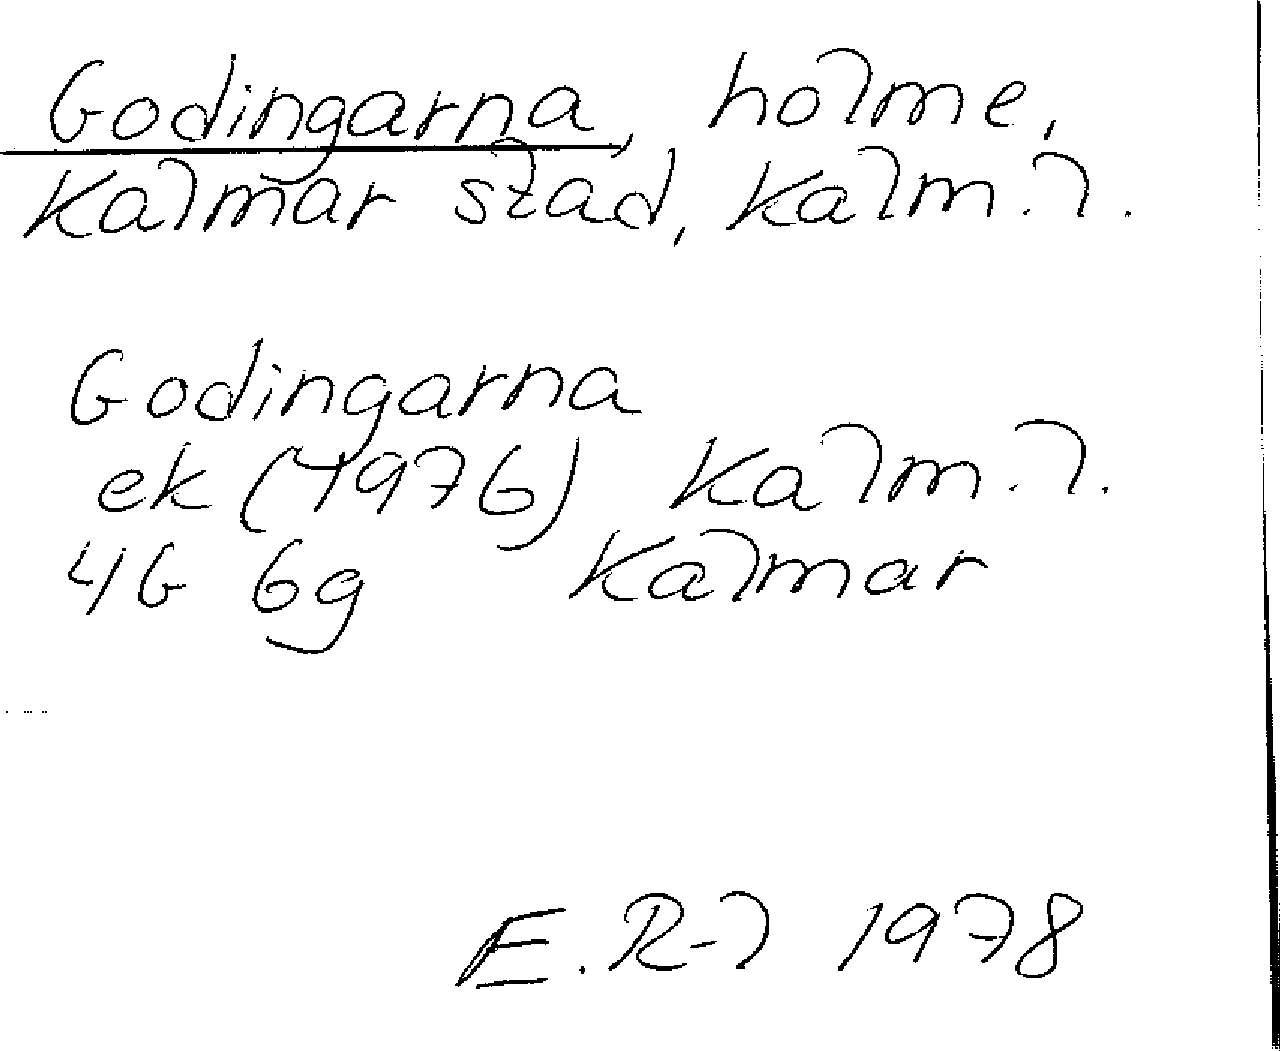 Godingarna, holme,
Kalmar stad, Kalm. l.
Godingarna
ek (1976) Kalm. l.
4G 6g Kalmar
E. R-l 1978